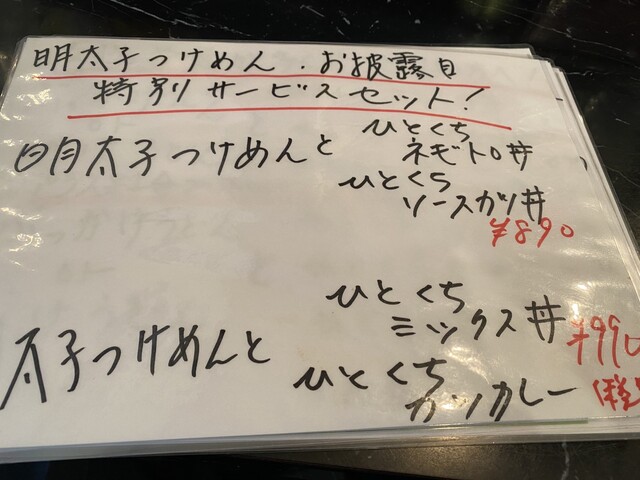 明太子つけめん.お披露目
特別サービスセット!
明太子つけめんと ひとくち
ネギトロ丼
ひとくち
ソースカツ丼
¥890
ひとくち
ミックス丼 ¥990
太子つけめんと ひとくち
カツカレー